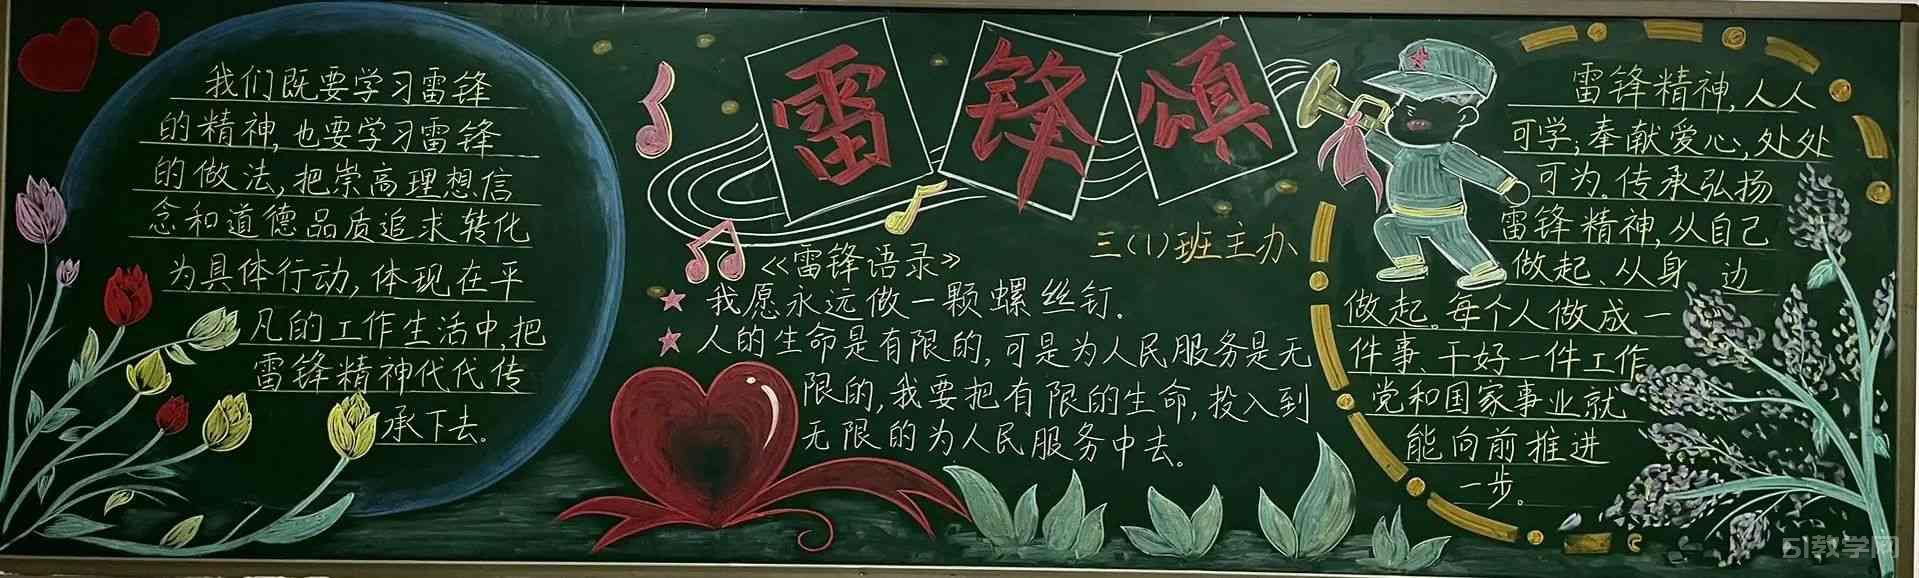 我们既要学习雷锋
的精神,也要学习雷锋
的做法,把崇高理想信
念和道德品质追求转化
为具体行动,体现在平
凡的工作生活中,把
雷锋精神代代传
承下去。
雷锋颂
三(1)班主办
《雷锋语录》
★ 我愿永远做一颗螺丝钉.
★ 人的生命是有限的,可是为人民服务是无
限的,我要把有限的生命,投入到
无限的为人民服务中去。
雷锋精神,人人
可学;奉献爱心,处处
可为。传承弘扬
雷锋精神,从自己
做起、从身 边
做起。每个人做成一
件事、干好一件工作
党和国家事业就
能向前推进
一步。
51教学网